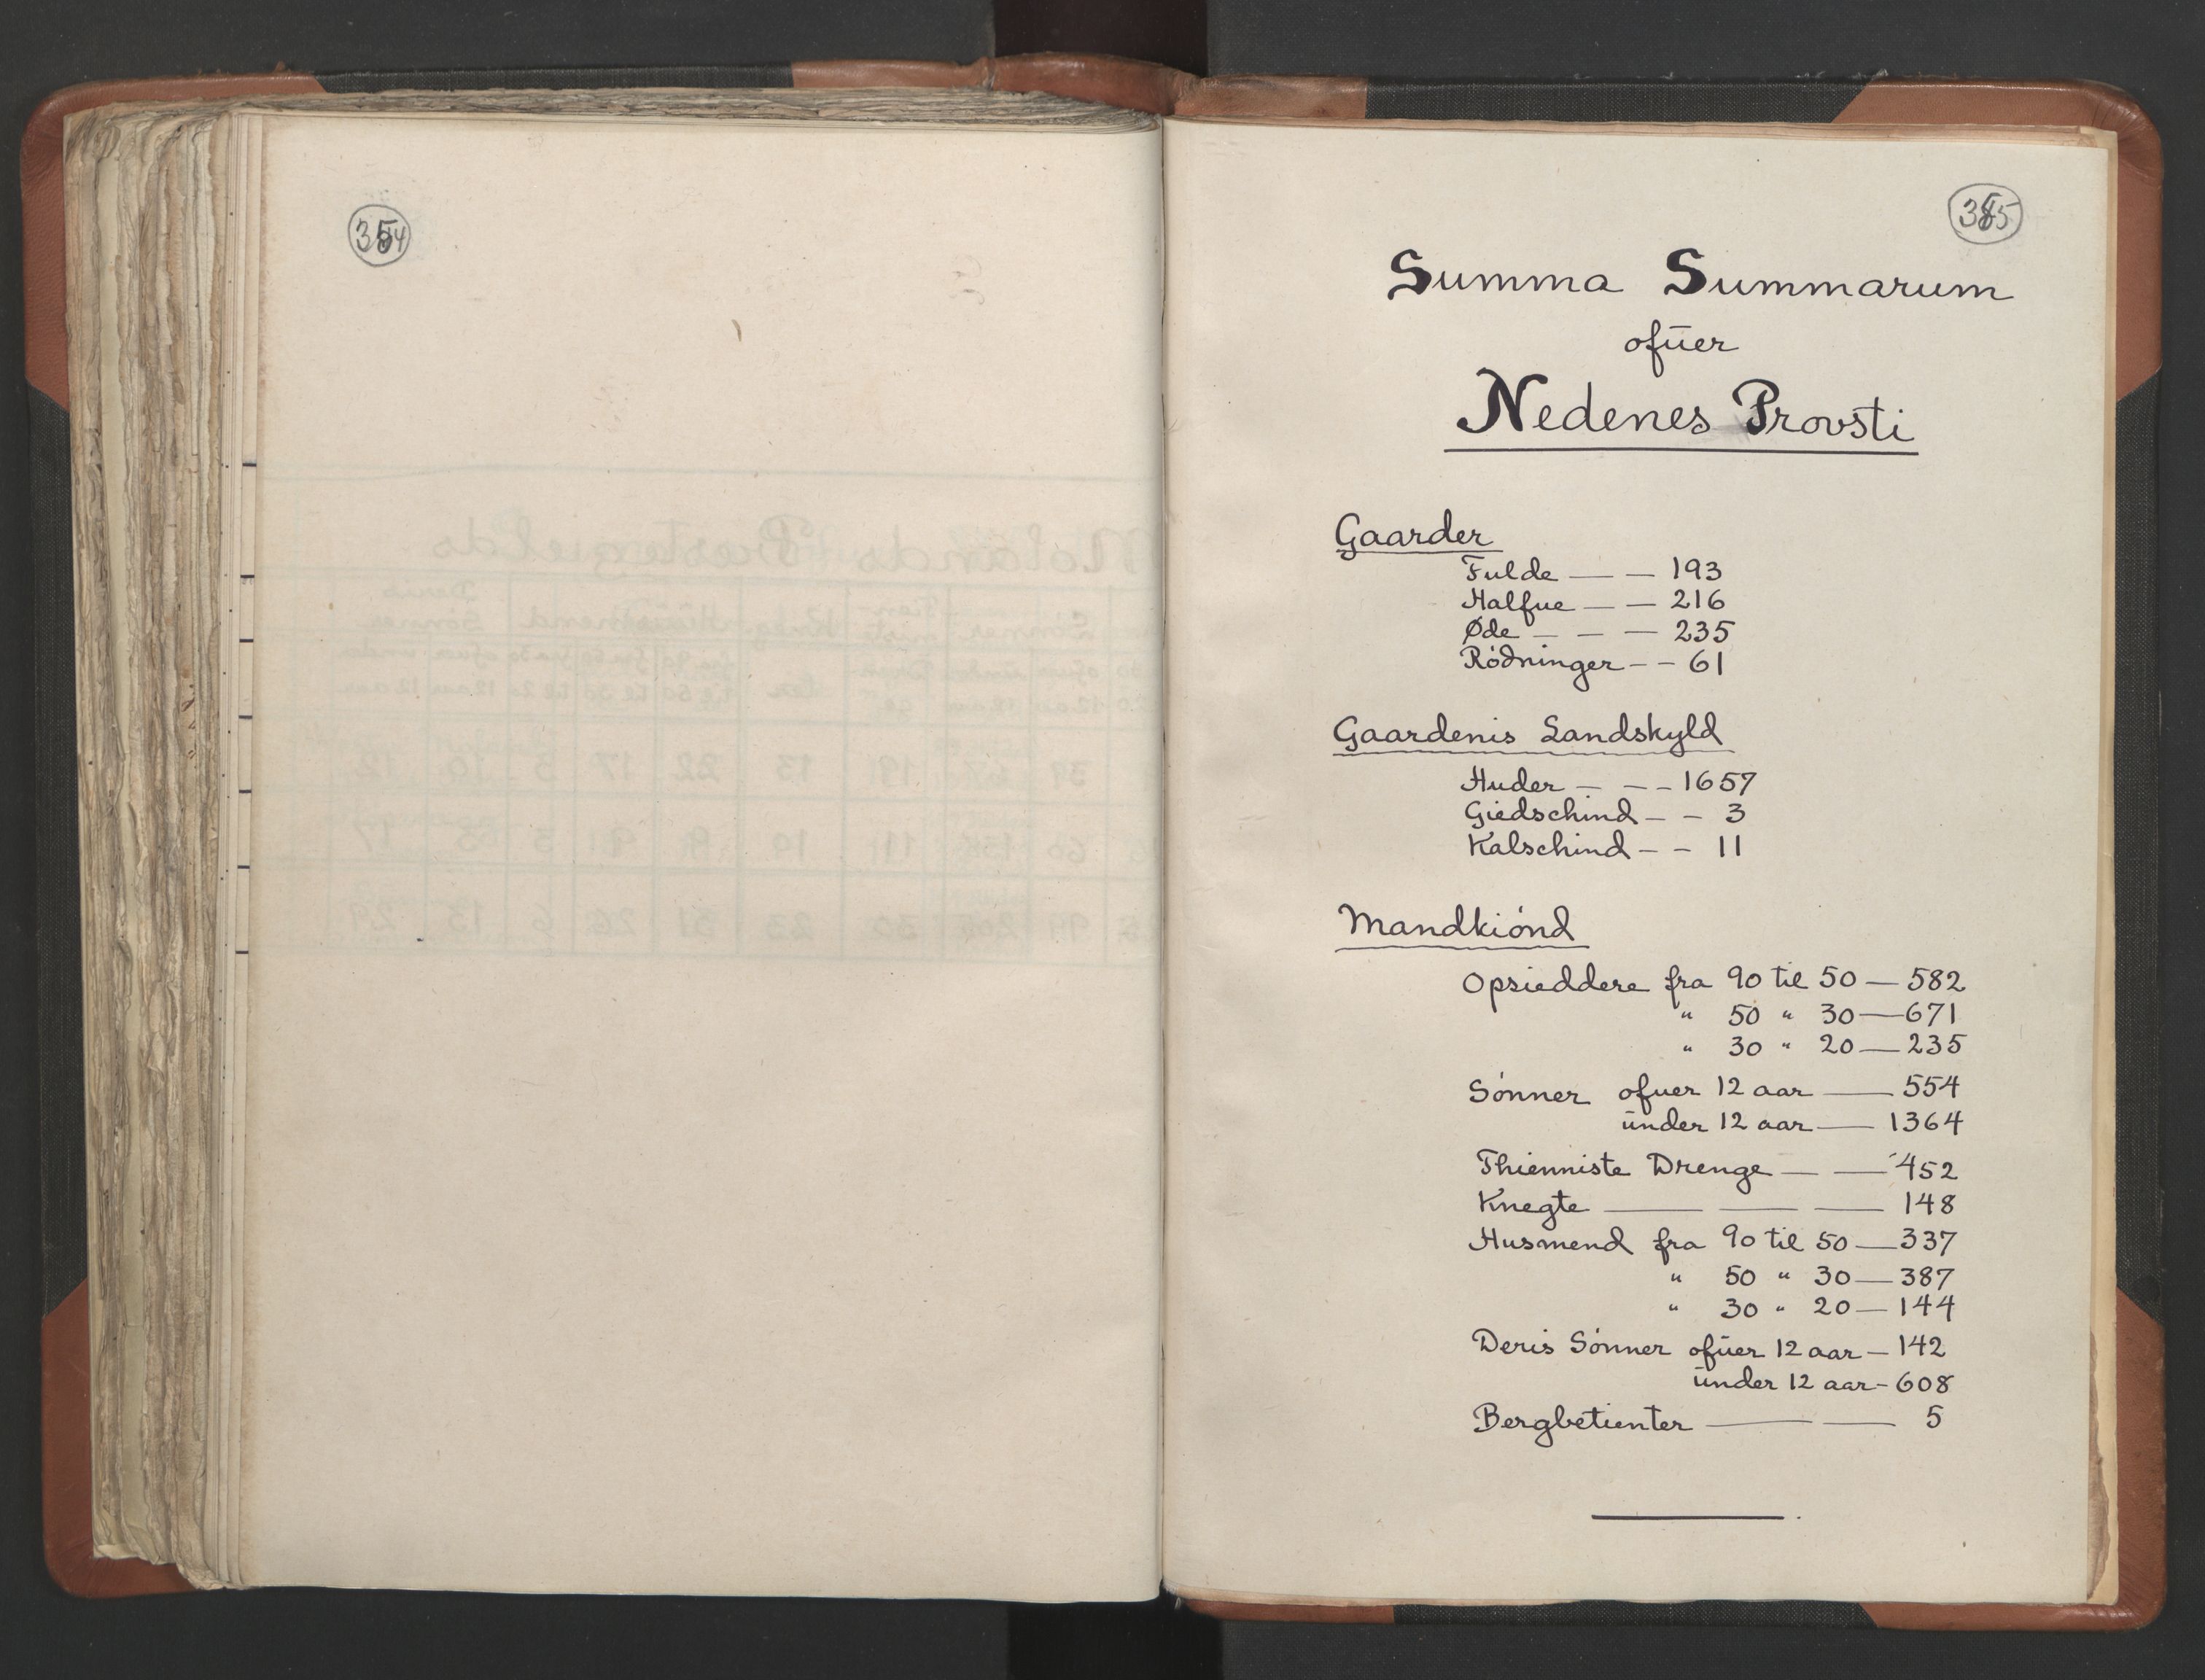 Summa Summarum
ofūer
Nedenes Provsti
Gaarder
Fulde — — 193
Halfue — — 216
Øde — — — 235
Rödninger — — 61
Gaardenis Landskyld
Huder — — — 1657
Giedschind — — 3
Kalschind — — 11
Mandkiönd
Opsieddere fra 90 til 50 — 582
" 50 " 30 — 671
" 30 " 20 — 235
Sónner ofuer 12 aar — 554
ūnder 12 aar — 1364
Thienniste Drenge — — 452
Knegte — — — 148
Husmend fra 90 til 50 — 337
" 50 " 30 — 387
" 30 " 20 — 144
Deris Sónner ofūer 12 aar — 142
ūnder 12 aar — 608
Bergbetienter — — 5